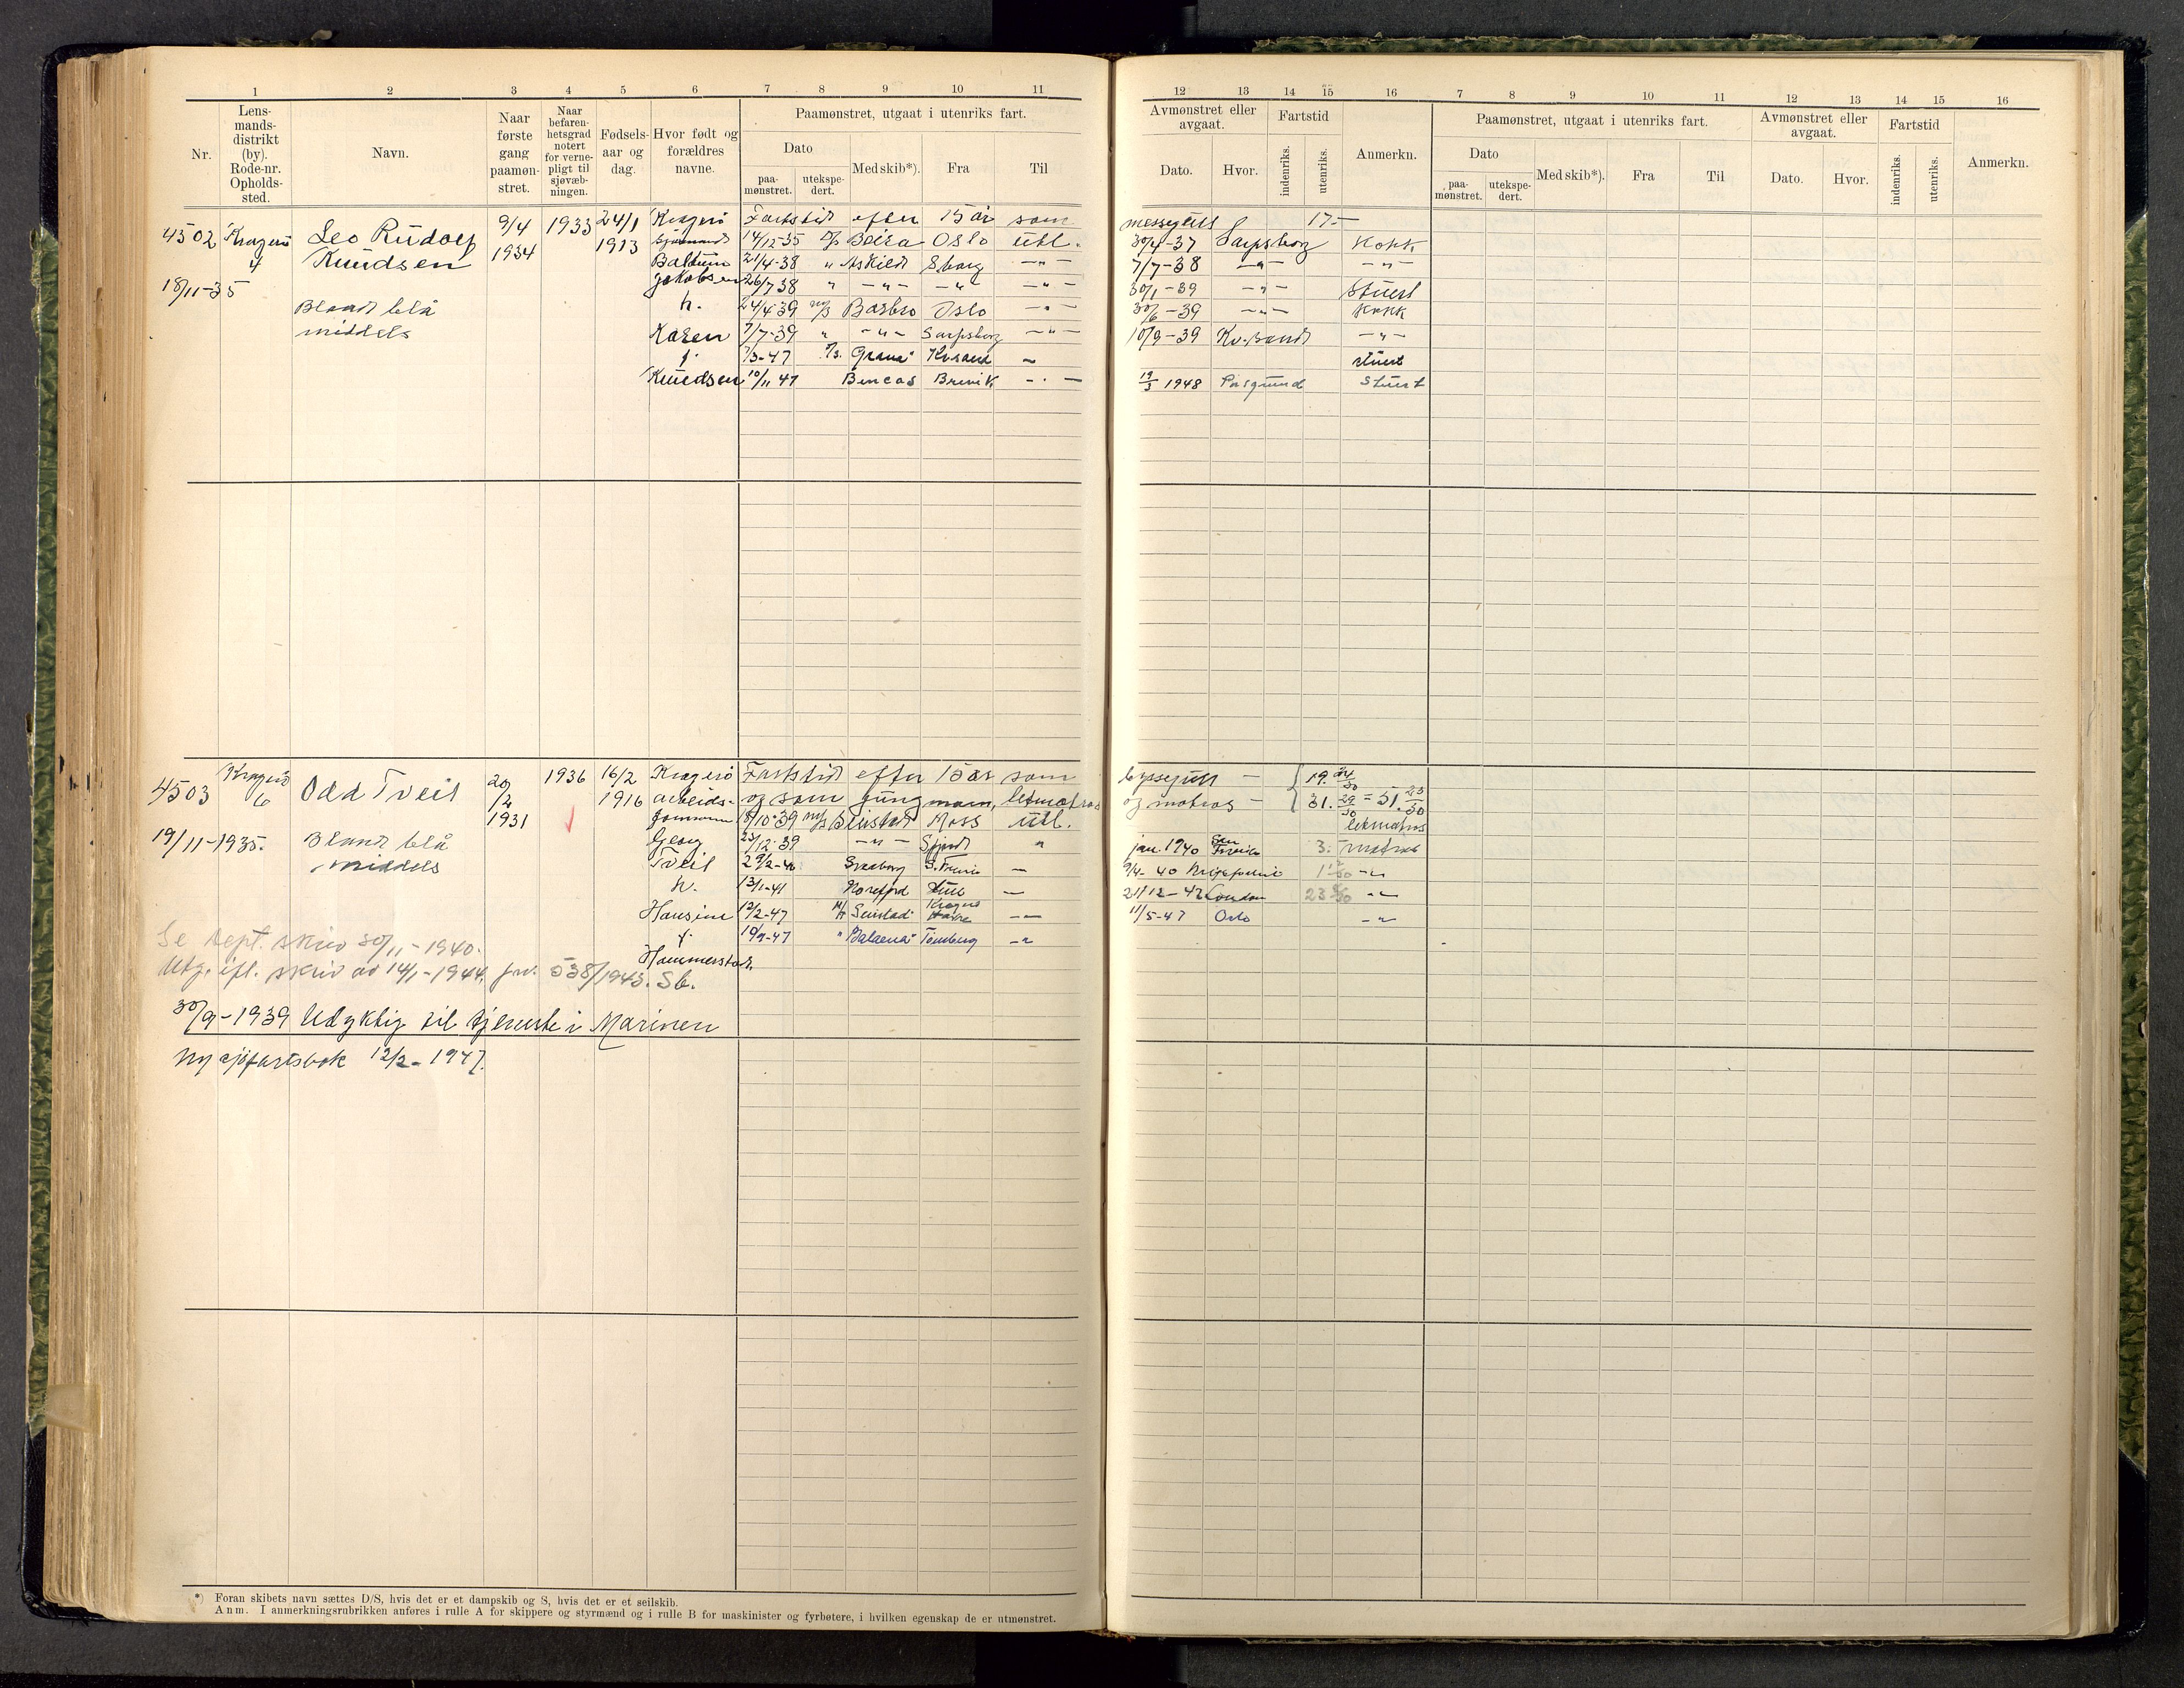 1 2 3 4 5 6 7 8 9 10 11
Nr. Lens-mands-distrikt (by). Rode-nr. Opholds-sted. Navn. Naar første gang paamøn-stret. Naar befaren-hetsgrad notert for verne-pligt til sjøvæb-ningen. Fødsels-aar og dag. Hvor født og forældres navne. Paamønstret, utgaat i utenriks fart.
Dato paa-mønstret. utekspe-dert. Med skib*). Fra Til
12 13 14 15 16 7 8 9 10 11 12 13 14 15 16
Avmønstret eller avgaat. Fartstid Anmerkn. Paamønstret, utgaat i utenriks fart. Avmønstret eller avgaat. Fartstid Anmerkn.
Dato. Hvor. indenriks. utenriks. Dato paa-mønstret. utekspe-dert. Med skib*). Fra Til Dato. Hvor. indenriks. utenriks.
4502 Kragerö 4 Leo Rudolf 9/4 1933 24/1 Kragerö Fartstid efter 15 år som messegutt 17.-
Knudsen 1934 1913 sjömand 14/12-35 D/S Beira Oslo utl. 30/4-37 Sarpsborg Kokk
Baltzer 21/4-38 " Askild Sborg -"- 7/7-38 -"- -"-
18/11-35 Jakobsen 26/7 38 " -"- -"- -"- 30/1-39 -"- Stuert
Blond blå h. 24/4 39 M/S Bosbro Oslo -"- 30/6-39 -"- Kokk
middels Karen 7/7-39 " -"- Sarpsborg -"- 10/9-39 Kr.sand -"-
f. 7/3-47 Grana Kr.sand - stuert
Knudsen 10/11 47 Brevik -"- 19/3 1948 Porsgrund Stuert
4503 Kragerö 6 Odd Tveit 20/2 1931 1936 16/2 1916 Kragerö Fartstid efter 15 år som byssegutt - 19. 24/30
arbeids- og som jungmann, letmatros og matros - 31. 29/30 = 51. 23/30
formann 18/10-39 M/S Seirstad Moss utl. letmatros
Georg 23/12-39 -"- " jan. 1940 San 3. matros
19/11-1935. Blond blå Tveit
middels h. 13/1-41 Hull - 21/12-42 London
Hansine 12/2-47 Kragerö -"- 11/5-47 Oslo -"-
f. "Balaena" Tönsberg -"-
Hammerstad.
Se dept. skriv 30/11-1940.
Utg. ifl. skriv av 14/1-1944, jnr. 538/1943. Sb.
30/9-1939 Udyktig til tjeneste i Marinen
Ny sjöfartsbok 12/2-1947.
*) Foran skibets navn sættes D/S, hvis det er et dampskib og S, hvis det er et seilskib.
Anm. I anmerkningsrubrikken anføres i rulle A for skippere og styrmænd og i rulle B for maskinister og fyrbøtere, i hvilken egenskap de er utmønstret.